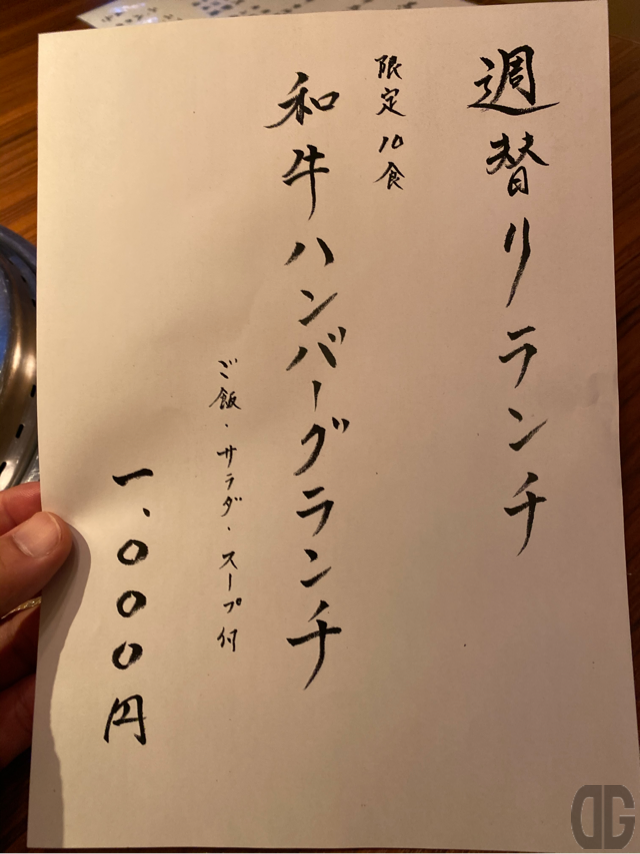 週替りランチ
限定10食
和牛ハンバーグランチ
ご飯・サラダ・スープ付
一、〇〇〇円
DG